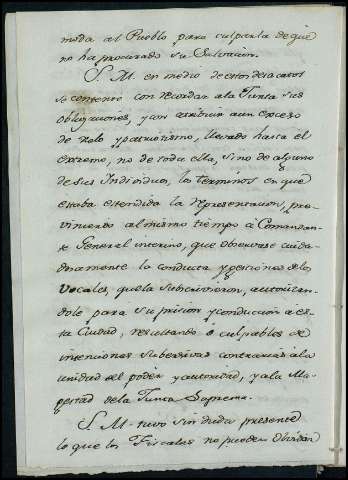 moda al Pueblo para culparla de que
no ha procurado su Salvacion.
S. M. en medio de estos desacatos
se contentó con recordar a la Junta sus
obligaciones, y con atribuir a un exceso
de zelo y patriotismo, llevado hasta el
extremo, no de toda ella, sino de alguno
de sus Individuos, los terminos en que
estaba estendida la representacion, pre-
viniendo al mismo tiempo á Comandan-
te General interino, que observase cuida-
dosamente la conducta y gestiones de los
Vocales, que la subscrivieron, autorizan-
dole para su prision y conduccion a es-
ta Ciudad, resultando ó culpables de
intenciones subersivas contrarias a la
unidad del poder y autoridad, y a la Ma-
gestad de la Junta Suprema.
S. M. tuvo sin duda presente
lo que los Fiscales no pueden olvidar